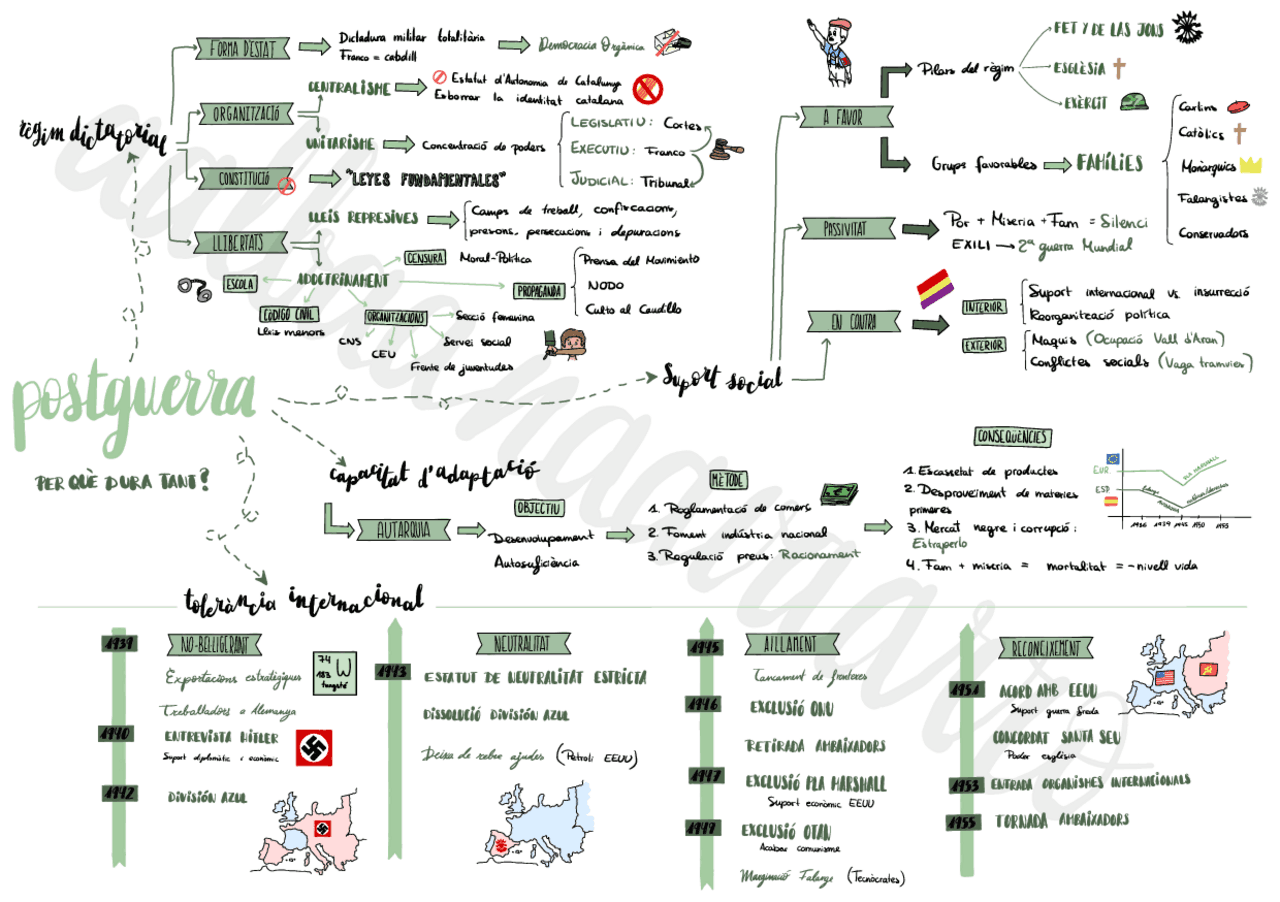 postguerra
PER QUÈ DURA TANT?
règim dictatorial
FORMA D'ESTAT
Dictadura militar totalitària
Franco = cabdill
Democracia Orgànica
ORGANITZACIÓ
CENTRALISME
Estatut d'Autonomia de Catalunya
Esborrar la identitat catalana
UNITARISME
Concentració de poders
LEGISLATIU: Cortes
EXECUTIU: Franco
JUDICIAL: Tribunal
CONSTITUCIÓ
"LEYES FUNDAMENTALES"
LLIBERTATS
LLEIS REPRESIVES
Camps de treball, confiscacions,
presons, persecucions i depuracions
ADOCTRINAMENT
CENSURA
Moral-Política
ESCOLA
PROPAGANDA
Prensa del Movimiento
NODO
Culto al Caudillo
CÓDIGO CIVIL
Lleis menors
ORGANITZACIONS
CNS
CEU
Secció femenina
Servei social
Frente de juventudes
Suport social
A FAVOR
Pilars del règim
FET Y DE LAS JONS
ESGLÈSIA
EXÈRCIT
Grups favorables
FAMÍLIES
Carlins
Catòlics
Monàrquics
Falangistes
Conservadors
PASSIVITAT
Por + Miseria + Fam = Silenci
EXILI → 2ª guerra Mundial
EN CONTRA
INTERIOR
Suport internacional vs insurrecció
Reorganització política
EXTERIOR
Maquis (Ocupació Vall d'Aran)
Conflictes socials (Vaga tramvies)
capacitat d'adaptació
AUTARQUIA
OBJECTIU
Desenvolupament
Autosuficiència
MÈTODE
1. Reglamentació de comerç
2. Foment indústria nacional
3. Regulació preus: Racionament
CONSEQÜÈNCIES
1. Escassetat de productes
2. Desproveïment de materies
primeres
3. Mercat negre i corrupció:
Estraperlo
4. Fam + miseria = mortalitat = - nivell vida
EUR
PLA MARSHALL
ESP
1936 1939 1945 1950 1955
tolerància internacional
1939
NO-BELLIGERANT
Exportacions estratègiques
74
W
183
tungstè
Treballadors a Alemanya
1940
ENTREVISTA HITLER
Suport diplomàtic i econòmic
1942
DIVISIÓN AZUL
NEUTRALITAT
1943
ESTATUT DE NEUTRALITAT ESTRICTA
DISSOLUCIÓ DIVISIÓN AZUL
Deixa de rebre ajudes (Petroli EEUU)
1945
AILLAMENT
Tancament de fronteres
1946
EXCLUSIÓ ONU
RETIRADA AMBAIXADORS
1947
EXCLUSIÓ PLA MARSHALL
Suport econòmic EEUU
1949
EXCLUSIÓ OTAN
Acabar comunisme
Marginació Falange (Tecnòcrates)
RECONEIXEMENT
1951
ACORD AMB EEUU
Suport guerra freda
CONCORDAT SANTA SEU
Poder església
1953
ENTRADA ORGANISMES INTERNACIONALS
1955
TORNADA AMBAIXADORS